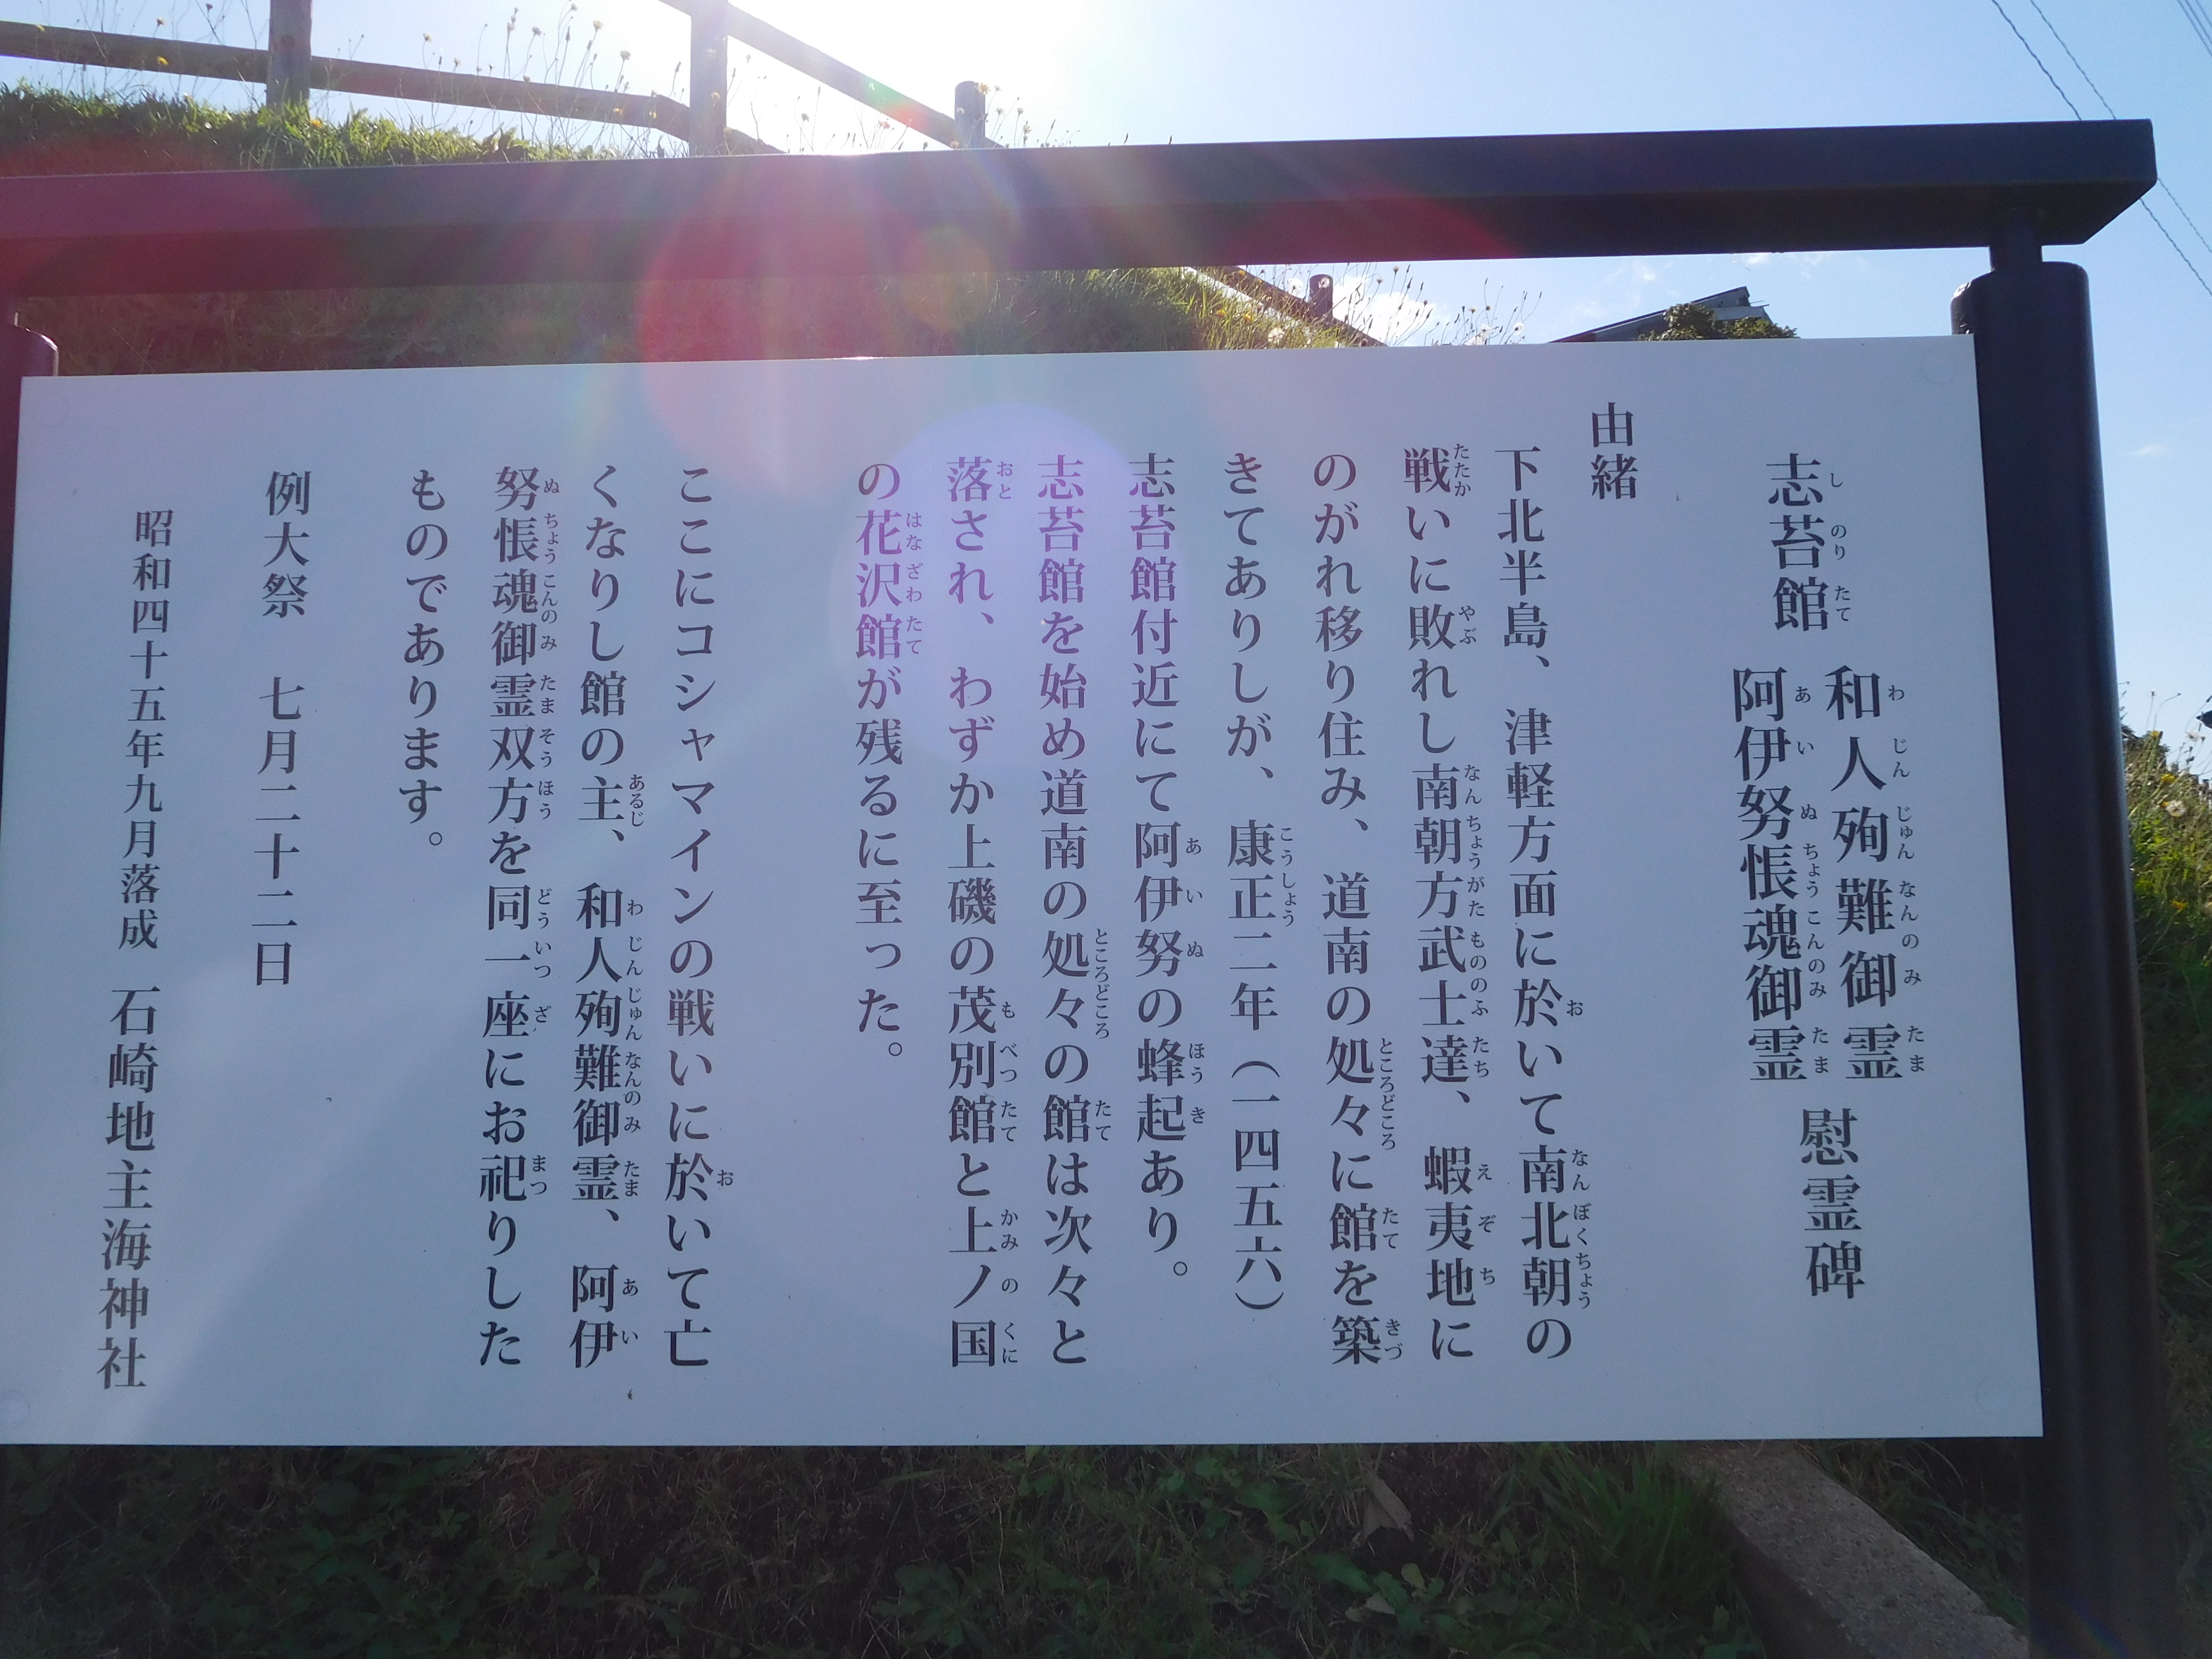 志苔館 和人殉難御霊 阿伊努悵魂御霊 慰霊碑
由緒
下北半島、津軽方面に於いて南北朝の
戦いに敗れし南朝方武士達、蝦夷地に
のがれ移り住み、道南の処々に館を築
きてありしが、康正二年（一四五六）
志苔館付近にて阿伊努の蜂起あり。
志苔館を始め道南の処々の館は次々と
落され、わずか上磯の茂別館と上ノ国
の花沢館が残るに至った。
ここにコシャマインの戦いに於いて亡
くなりし館の主、和人殉難御霊、阿伊
努悵魂御霊双方を同一座にお祀りした
ものであります。
例大祭 七月二十二日
昭和四十五年九月落成 石崎地主海神社